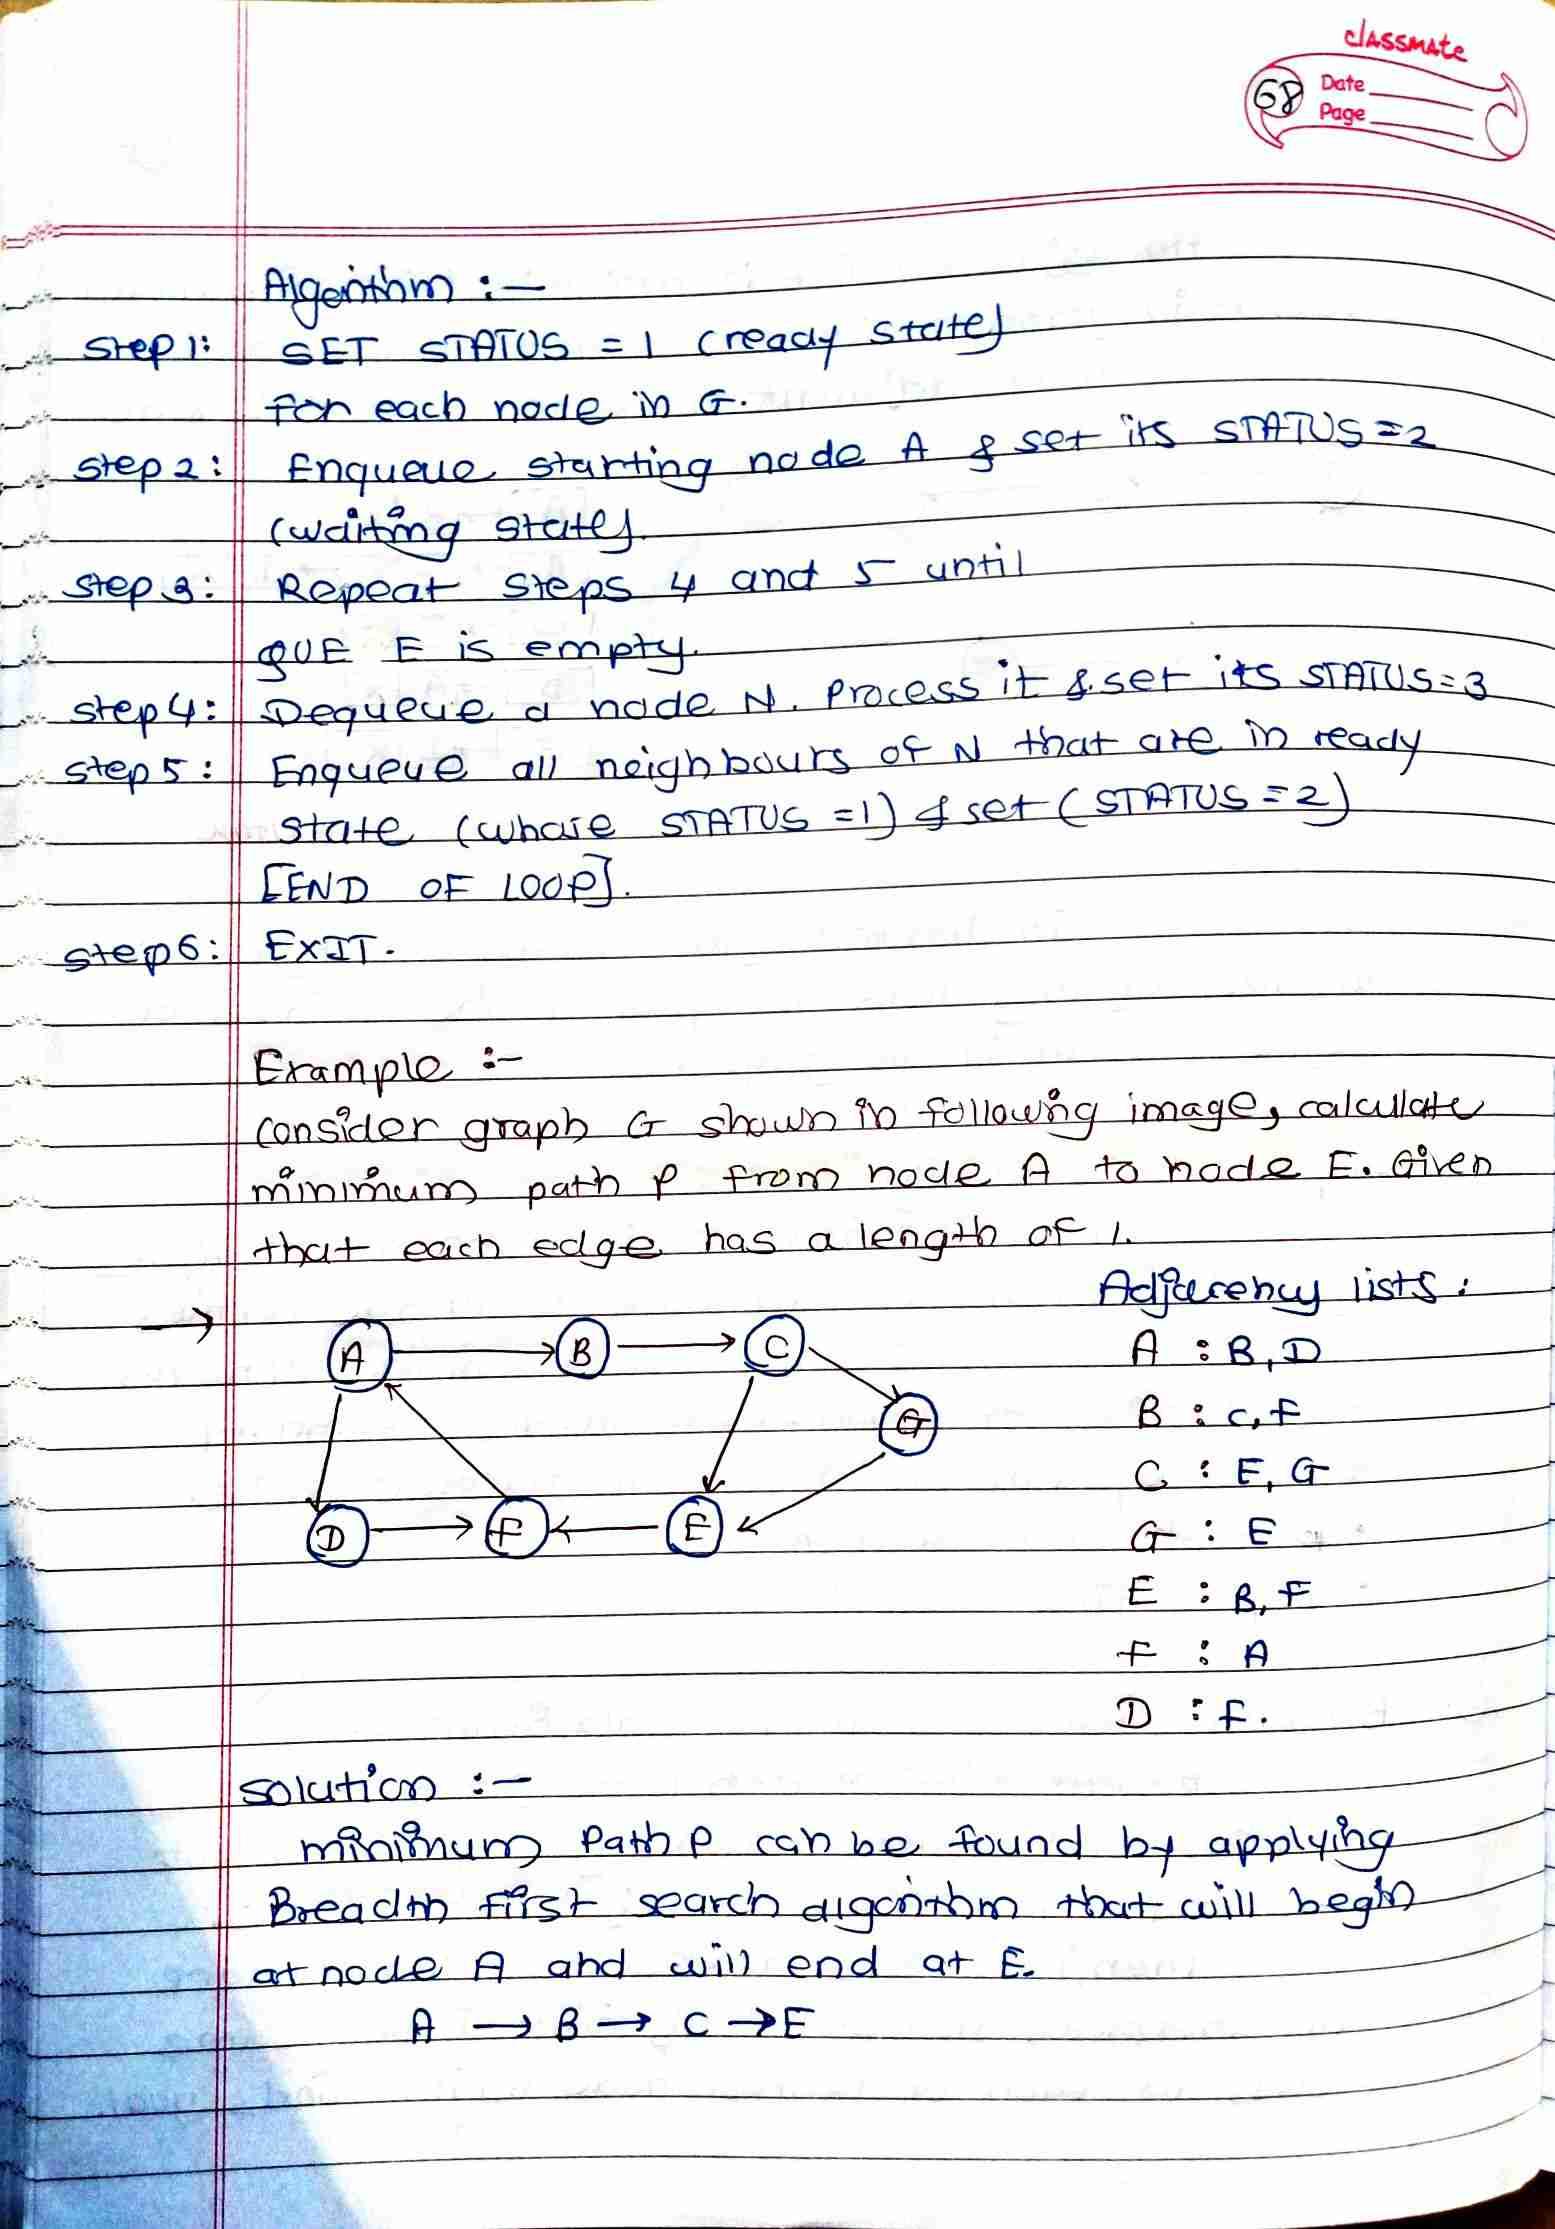 classmate
68
Date
Page
Algorithm :-
Step 1: SET STATUS = 1 (ready state)
for each node in G.
Step 2: Enqueue starting node A & set its STATUS = 2
(waiting state)
Step 3: Repeat steps 4 and 5 until
QUE E is empty.
Step 4: Dequeue a node N. Process it & set its STATUS = 3
Step 5: Enqueue all neighbours of N that are in ready
state (whose STATUS = 1) & set (STATUS = 2)
[END OF LOOP].
Step 6: EXIT.
Example :-
Consider graph G shown in following image, calculate
minimum path P from node A to node E. Given
that each edge has a length of 1.
Adjacency lists :
→ A → B → C
A : B, D
B : C, F
G
C : E, G
D → F ← E
G : E
E : B, F
F : A
D : F.
Solution :-
minimum Path P can be found by applying
Breadth first search algorithm that will begin
at node A and will end at E.
A → B → C → E